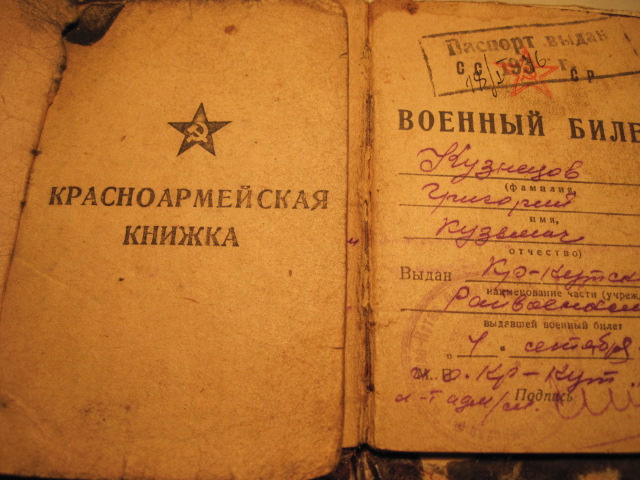 КРАСНОАРМЕЙСКАЯ
КНИЖКА
Паспорт выдан
СС 193 6 г. СР
ВОЕННЫЙ БИЛЕ
Кузнецов
(фамилия,
Григорий
имя,
Кузьмич
отчество)
Выдан Кр-Кутск
наименование части (учреж
Райвоенком
выдавшей военный билет
сентября
М. Кр-Кут
Подпись